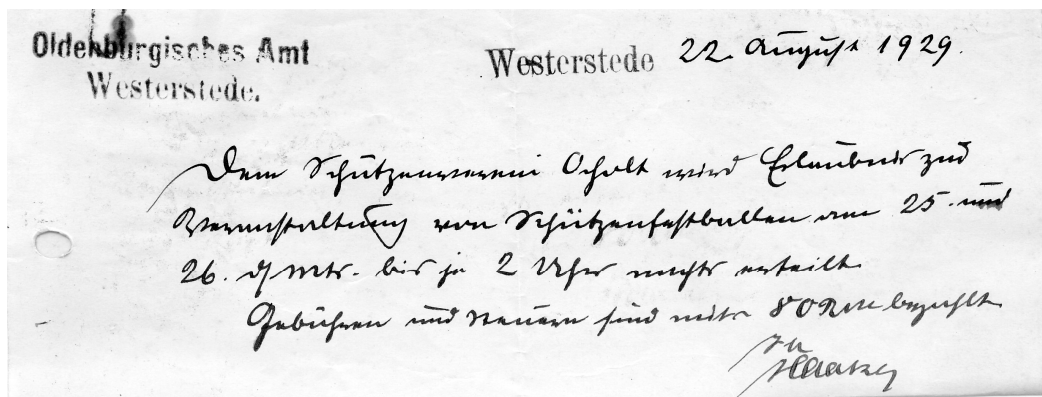 Oldenburgisches Amt
Westerstede.
Westerstede 22. August 1929.
Dem Schützenverein Ocholt wird Erlaubnis zur
Veranstaltung von Schützenfestbällen am 25. und
26. d. Mts. bis je 2 Uhr nachts erteilt.
Gebühren und Steuern sind mit 80 RM bezahlt